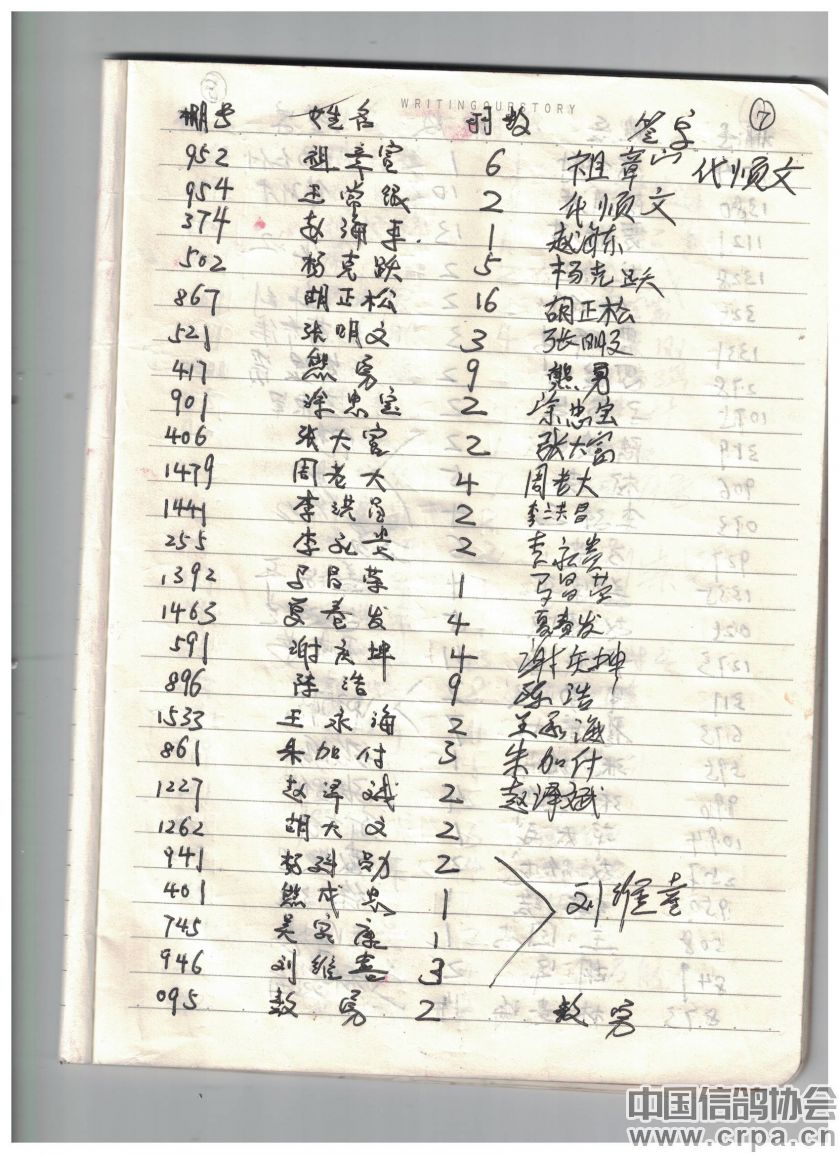 WRITINGOURSTORY
⑦
棚号 姓名 羽数 签字
952 祖章宣 6 祖章 代顺文
954 王常银 2 代顺文
374 赵海东 1 赵海东
502 杨克跃 5 杨克跃
867 胡正松 16 胡正松
521 张明文 3 张明文
417 熊勇 9 熊勇
901 涂忠宝 2 涂忠宝
406 张大富 2 张大富
1479 周老大 4 周老大
1441 李洪昌 2 李洪昌
255 李永贵 2 李永贵
1392 马昌荣 1 马昌荣
1463 夏春发 4 夏春发
591 谢庆坤 4 谢庆坤
896 陈浩 9 陈浩
1533 王永海 2 王永海
861 朱加付 3 朱加付
1227 赵泽斌 2 赵泽斌
1262 胡大文 2
941 杨科勋 2
401 熊成忠 1 刘维喜
745 吴家康 1
946 刘维喜 3
095 敖勇 2 敖勇
中国信鸽协会
www.crpa.cn